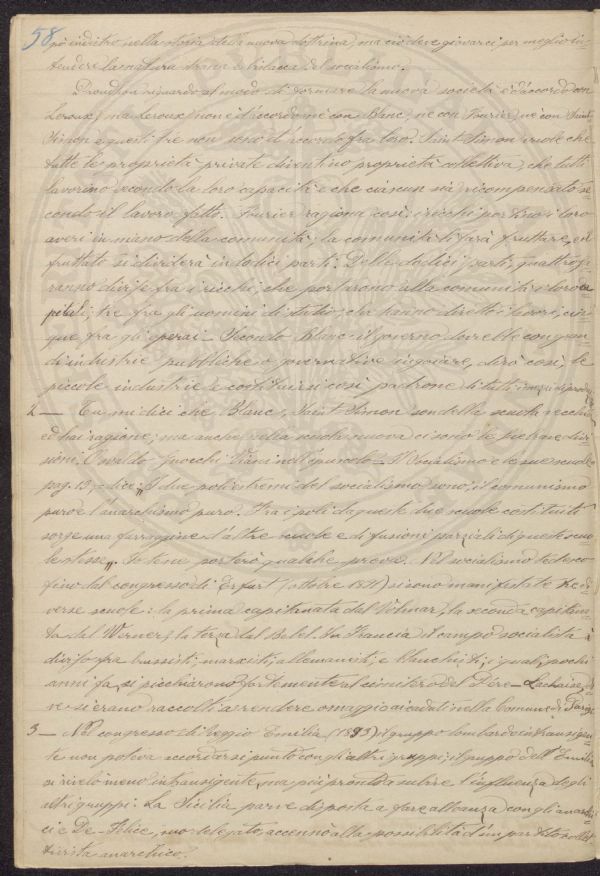 58
po' indietro nella storia della nuova dottrina, ma ciò deve giovarci per meglio in-
tendere la natura strana e bislacca del socialismo.
Proudhon riguardo al modo di formare la nuova società è d'accordo con
Leroux; ma Leroux non è d'accordo nè con Blanc, nè con Fourier, nè con Saint-
Simon e questi tre non sono d'accordo fra loro. Saint-Simon vuole che
tutte le proprietà private diventino proprietà collettiva, che tutti
lavorino secondo la loro capacità e che ciascuno sia ricompensato se-
condo il lavoro fatto. Fourier ragiona così: i ricchi portino i loro
averi in mano della comunità; la comunità li farà fruttare, e il
fruttato si dividerà in dodici parti. Delle dodici parti, quattro sa-
ranno divise fra i ricchi, che portarono alla comunità i loro ca
pitali; tre fra gli uomini di studio, che hanno diretto i lavori; cin-
que fra gli operai. Secondo Blanc il governo dovrebbe con gran-
di industrie pubbliche o governative ingoiare, dirò così, le
piccole industrie e costituirsi così padrone di tutti i mezzi di produz
2 — Tu mi dici che Blanc, Saint-Simon son della scuola vecchia
ed hai ragione; ma anche nella scuola nuova ci sono le sue brave divi
sioni. Osvaldo Gnocchi Viani nell'opuscolo — Il Socialismo e le sue scuole
pag. 13, dice „ I due poli estremi del socialismo sono: il comunismo
puro e l'anarchismo puro. Fra i poli da queste due scuole costituiti
sorge una farragine d'altre scuole e di fusioni parziali di queste scuo
le stesse „. Io te ne porterò qualche prova. Nel socialismo tedesco
fino dal congresso di Erfurt (ottobre 1891) si sono manifestate tre di-
verse scuole: la prima capitanata dal Volmar, la seconda capitana-
ta dal Werner, la terza del Bebel. In Francia il campo socialista è
diviso fra brussisti, marxisti, allemanisti, e blanchisti, i quali, pochi
anni fa, si picchiarono fortemente al cimitero del Père-Lachaise, do
ve si erano raccolti a rendere omaggio ai caduti nella Comune di Parigi.
3 — Nel congresso di Reggio Emilia (1893) il gruppo lombardo intransigen-
te non poteva accordarsi punto con gli altri gruppi; il gruppo dell'Emilia
si rivelò meno intransigente, ma più pronto a subire l'influenza degli
altri gruppi. La Sicilia parve disposta a fare alleanza con gli anarchi
ci e De-Felice, suo delegato, accennò alla possibilità d'un partito collet
tivista anarchico.